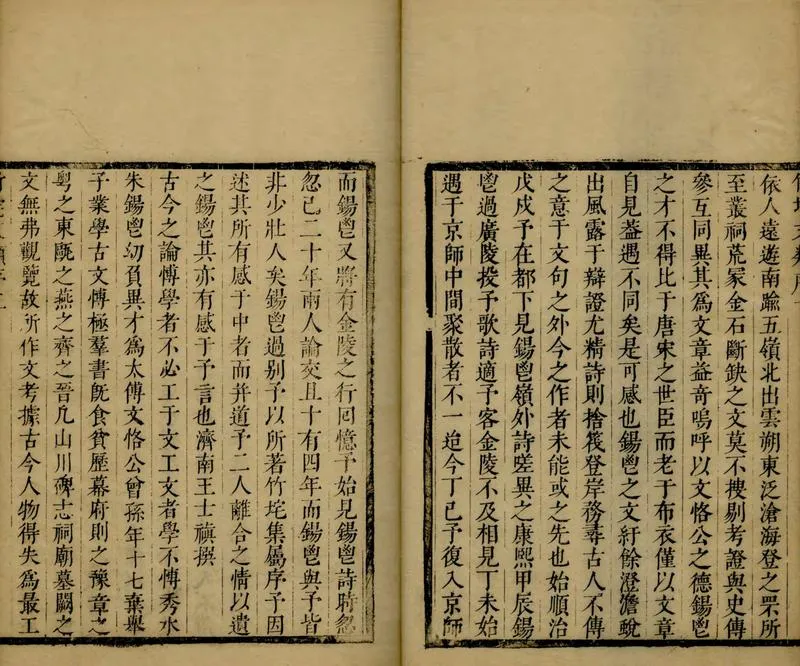 依人遠遊南踰五嶺北出雲朔東泛滄海登之罘所
至叢祠荒冢金石斷缺之文莫不搜剔考證與史傳
參互同異其爲文章益奇嗚呼以文恪公之德鍚鬯
之才不得比于唐宋之世臣而老于布衣僅以文章
自見益遇不同矣是可感也鍚鬯之文紆餘澄澹蛻
出風露于辯證尤精詩則捨筏登岸務尋古人不傳
之意于文句之外今之作者未能或之先也始順治
戊戌予在都下見鍚鬯嶺外詩嗟異之康熙甲辰鍚
鬯過廣陵投予歌詩適予客金陵不及相見丁未始
遇于京師中間聚散者不一迨今丁巳予復入京師
而鍚鬯又將有金陵之行囘憶予始見鍚鬯詩時忽
忽已二十年兩人論交且十有四年而鍚鬯與予皆
非少壯人矣鍚鬯過别予以所著竹垞集屬序予因
述其所有感于中者而并道予二人離合之情以遺
之鍚鬯其亦有感于予言也濟南王士禛撰
古今之論博學者不必工于文工文者學不博秀水
朱鍚鬯幼負異才爲太傅文恪公曾孫年十七棄舉
子業學古文博極羣書旣食貧歷幕府則之豫章之
粤之東甌之燕之齊之晉凡山川碑志祠廟墓闕之
文無弗觀覽故所作文考據古今人物得失爲最工